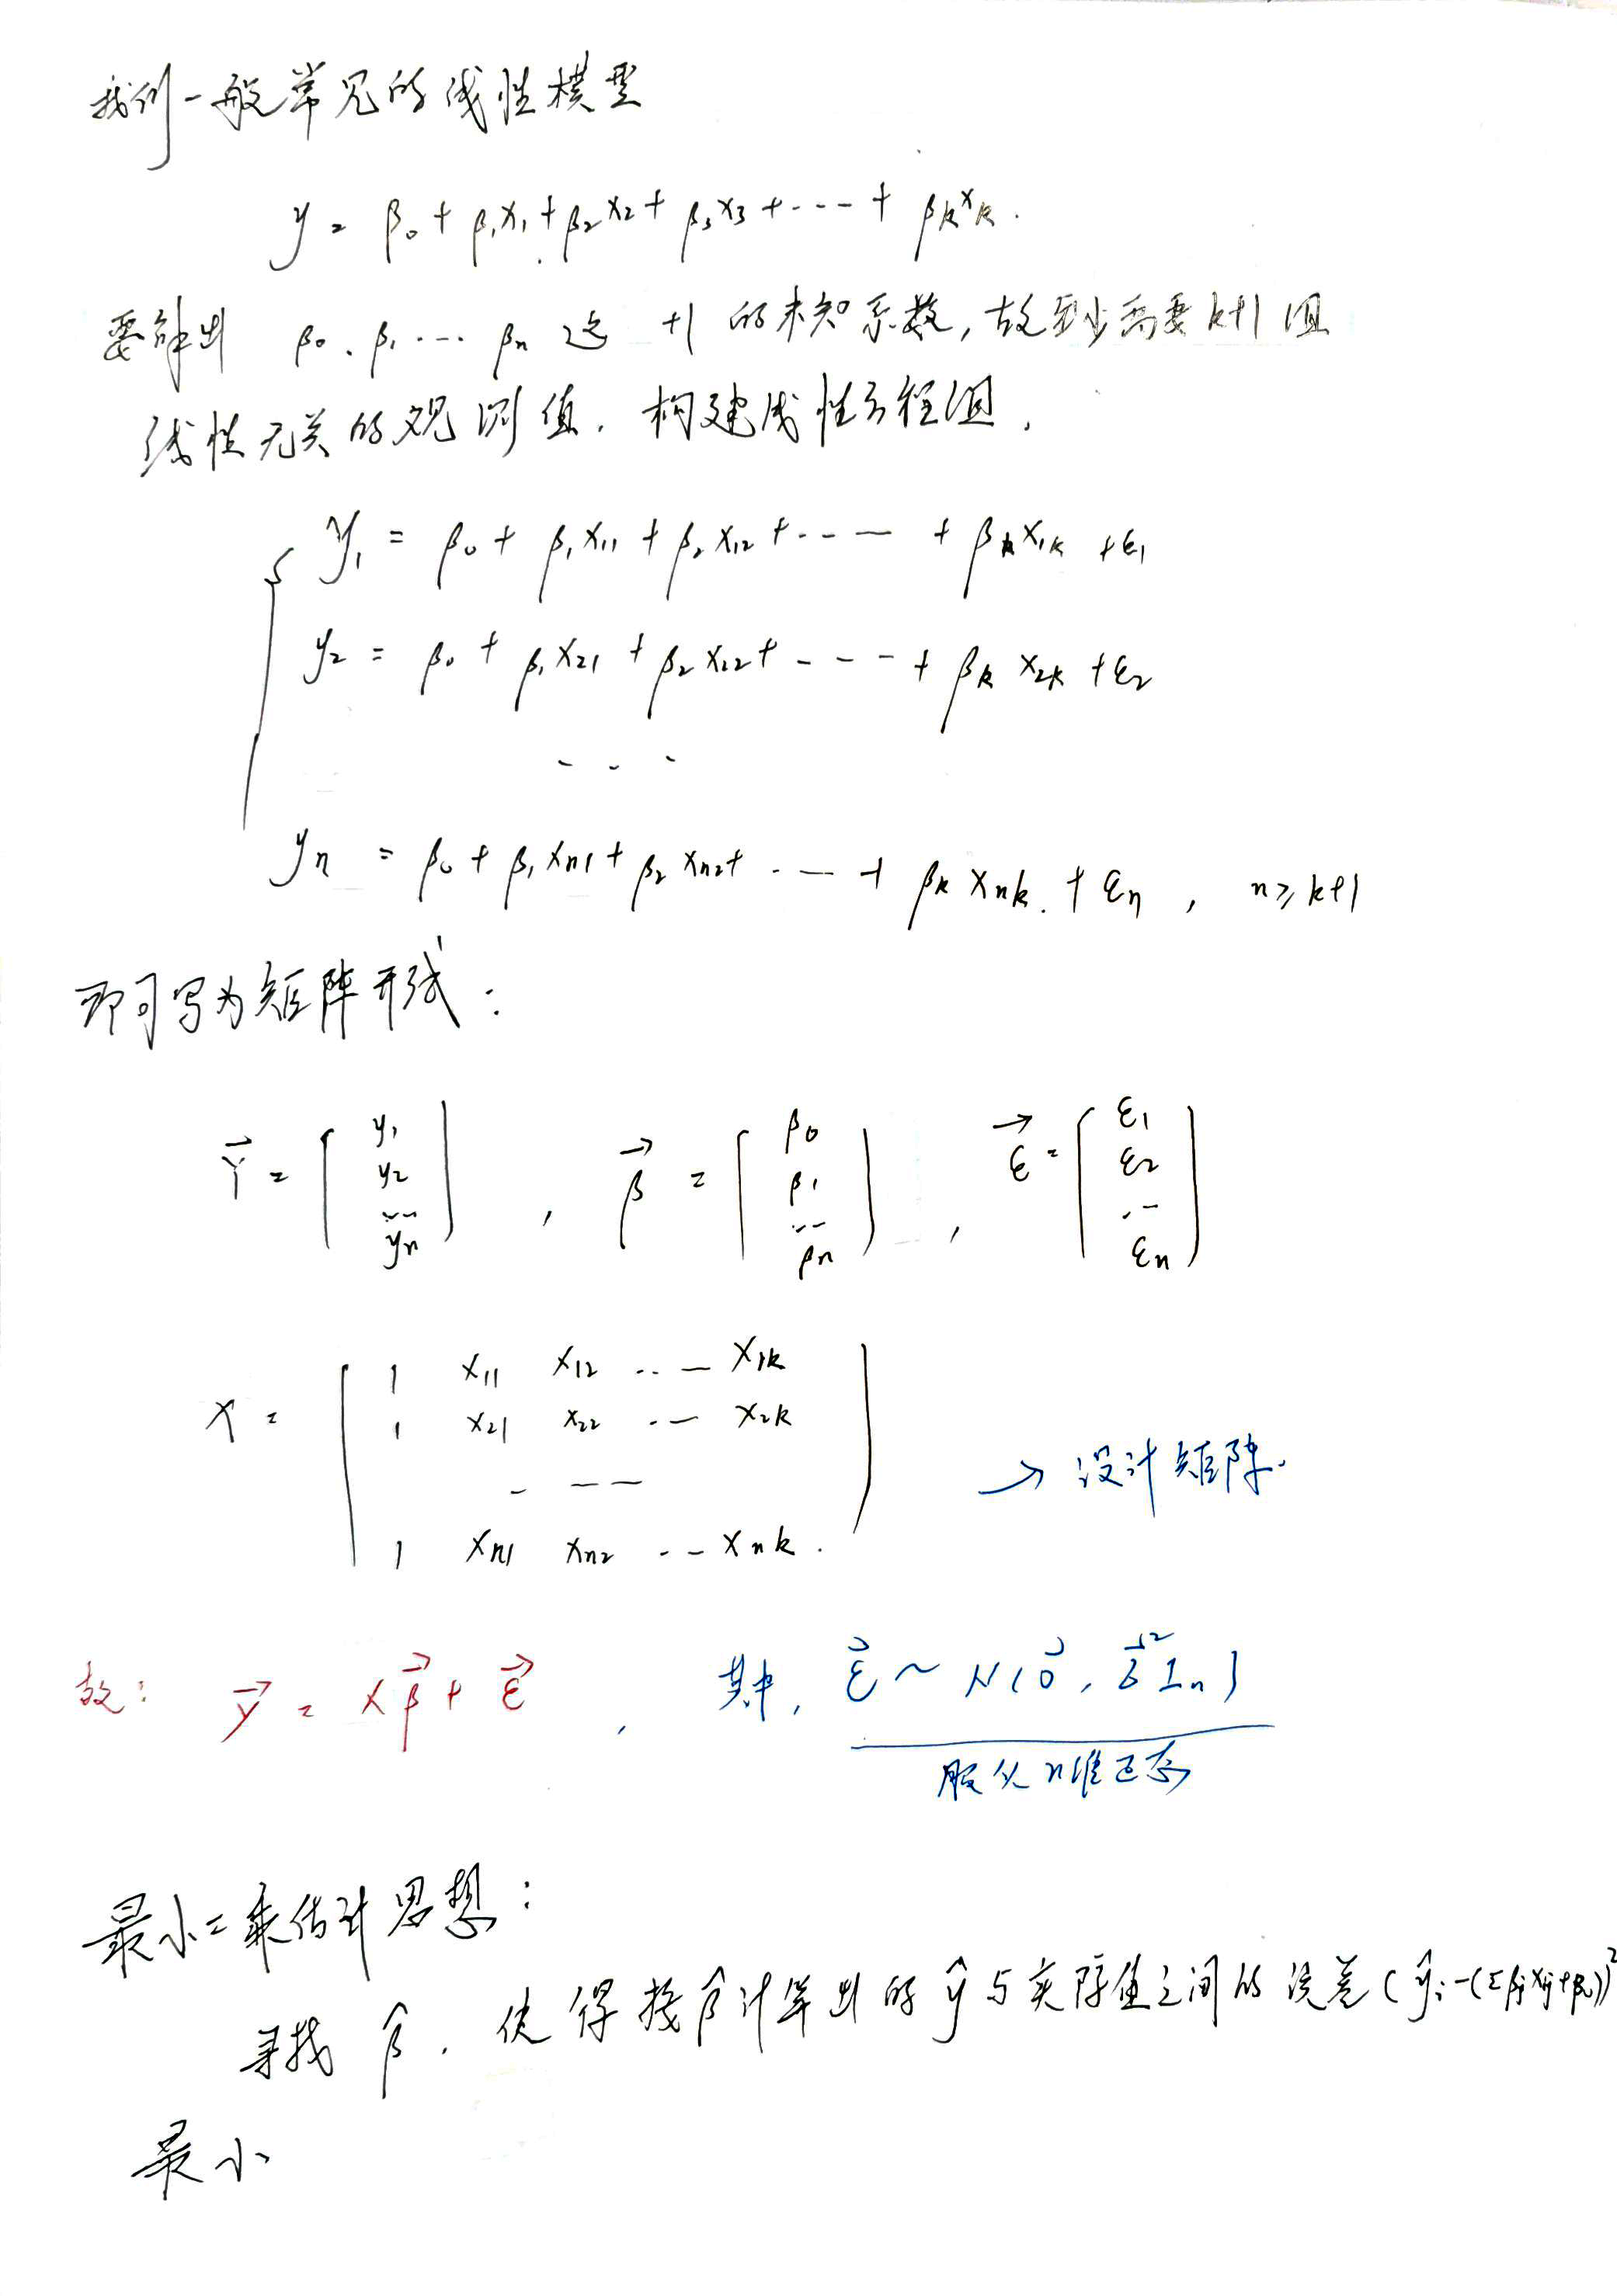 我们一般常见的线性模型
y = β₀ + β₁x₁ + β₂x₂ + β₃x₃ + ⋯ + βₖxₖ.
要解出 β₀、β₁ ⋯ βₙ 这 +1 的未知系数,故至少需要k+1组
线性无关的观测值. 构建线性方程组.
y₁ = β₀ + β₁x₁₁ + β₂x₁₂ + ⋯ + βₖx₁ₖ + ε₁
y₂ = β₀ + β₁x₂₁ + β₂x₂₂ + ⋯ + βₖx₂ₖ + ε₂
⋯
yₙ = β₀ + β₁xₙ₁ + β₂xₙ₂ + ⋯ + βₖxₙₖ. + εₙ , n ≥ k+1
即可写为矩阵形式:
Y⃗ = [y₁ y₂ ⋯ yₙ] , β⃗ = [β₀ β₁ ⋯ βₙ] , ε⃗ = [ε₁ ε₂ ⋯ εₙ]
X = [
1 x₁₁ x₁₂ ⋯ x₁ₖ
1 x₂₁ x₂₂ ⋯ x₂ₖ
⋯
1 xₙ₁ xₙ₂ ⋯ xₙₖ.
] → 设计矩阵.
故: y⃗ = Xβ⃗ + ε⃗ , 其中, ε⃗ ~ N(0⃗, σ⃗²Iₙ)
服从n维正态
最小二乘估计思想:
寻找 β̂. 使得按β̂计算出的ŷ与实际值之间的误差(ŷᵢ-(Σβⱼxᵢⱼ+β₀))²
最小